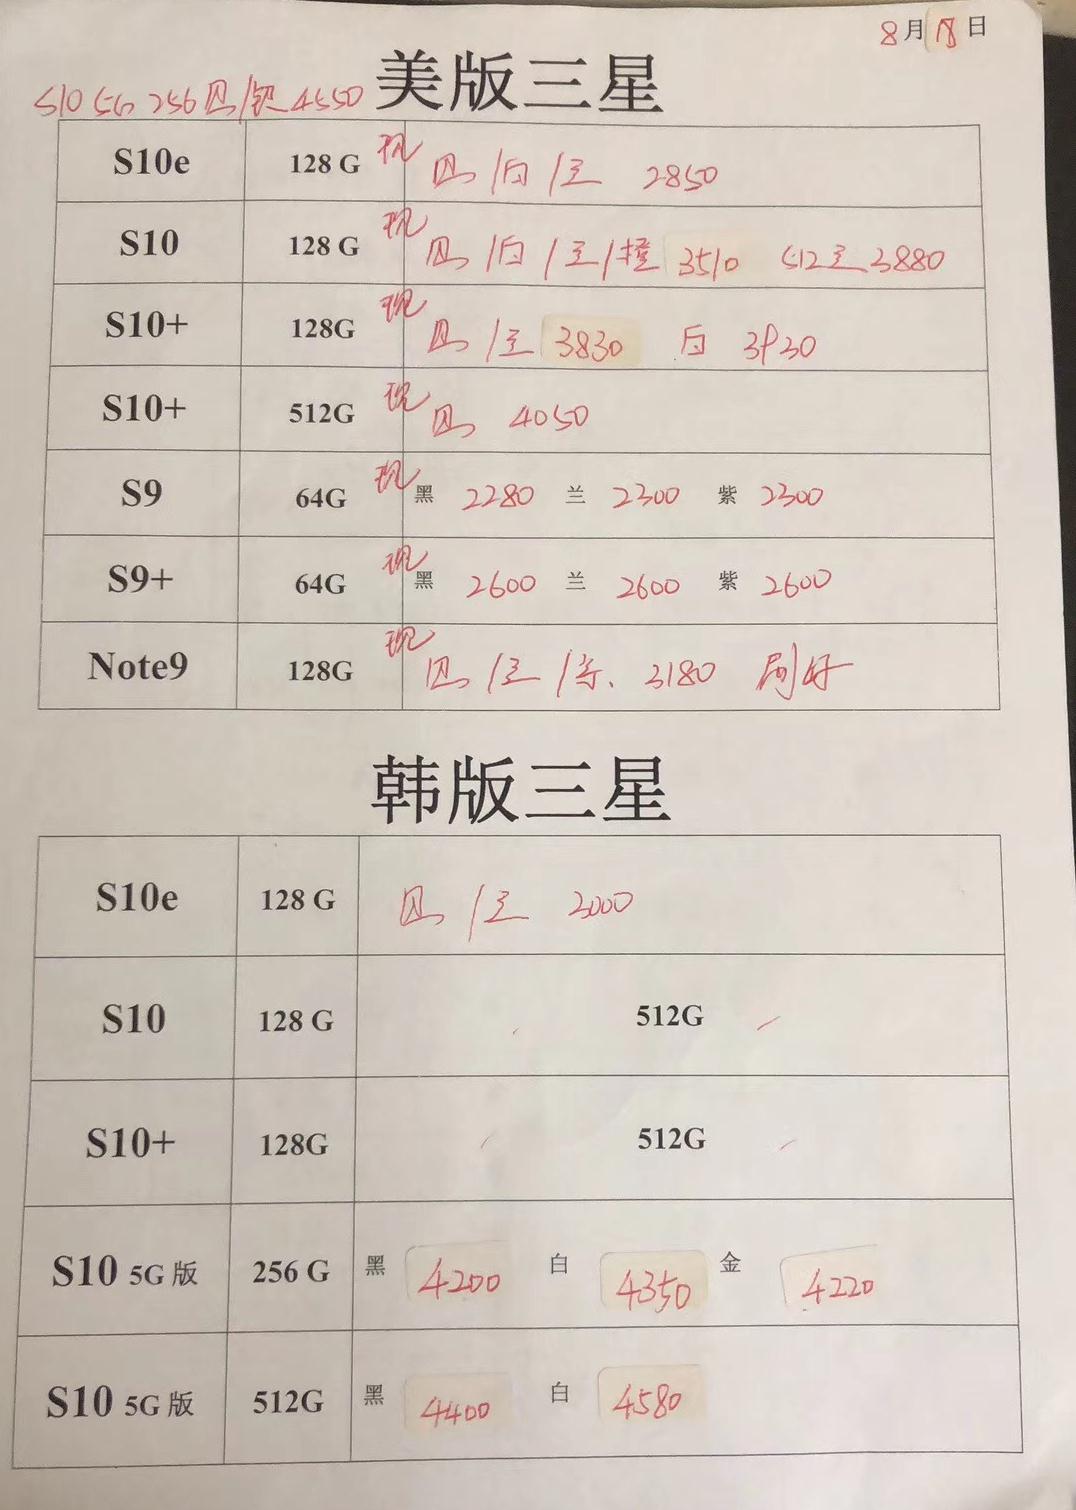 8月18日
美版三星
S10 5G 256 黑/银 4550
S10e 128 G 现 黑/白/兰 2850
S10 128 G 现 黑/白/兰/橙 3510 512兰 3880
S10+ 128G 现 黑/兰 3830 白 3930
S10+ 512G 现 黑 4050
S9 64G 现 黑 2280 兰 2300 紫 2300
S9+ 64G 现 黑 2600 兰 2600 紫 2600
Note9 128G 现 黑/兰/紫 3180 刷好
韩版三星
S10e 128 G 黑/兰
S10 128 G 512G
S10+ 128G 512G
S10 5G 版 256 G 黑 4200 白 4350 金 4220
S10 5G 版 512G 黑 4400 白 4580